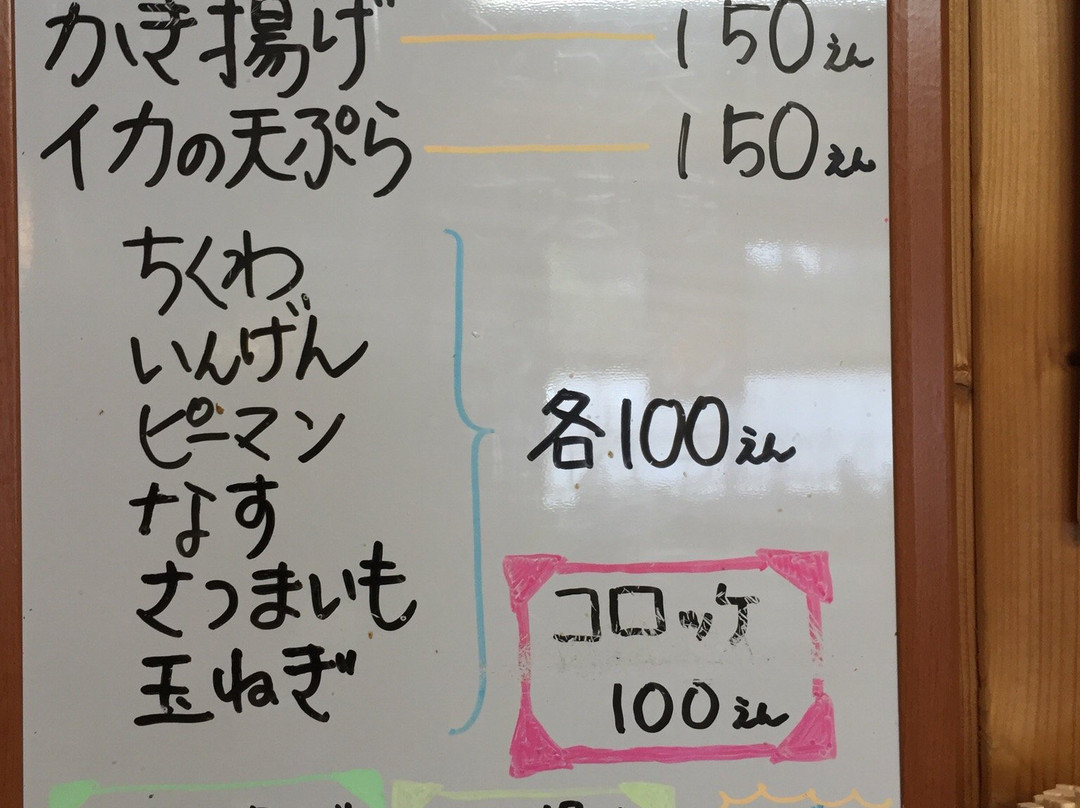 かき揚げ 150えん
イカの天ぷら 150えん
ちくわ
いんげん
ピーマン
なす
さつまいも
玉ねぎ
各100えん
コロッケ
100えん